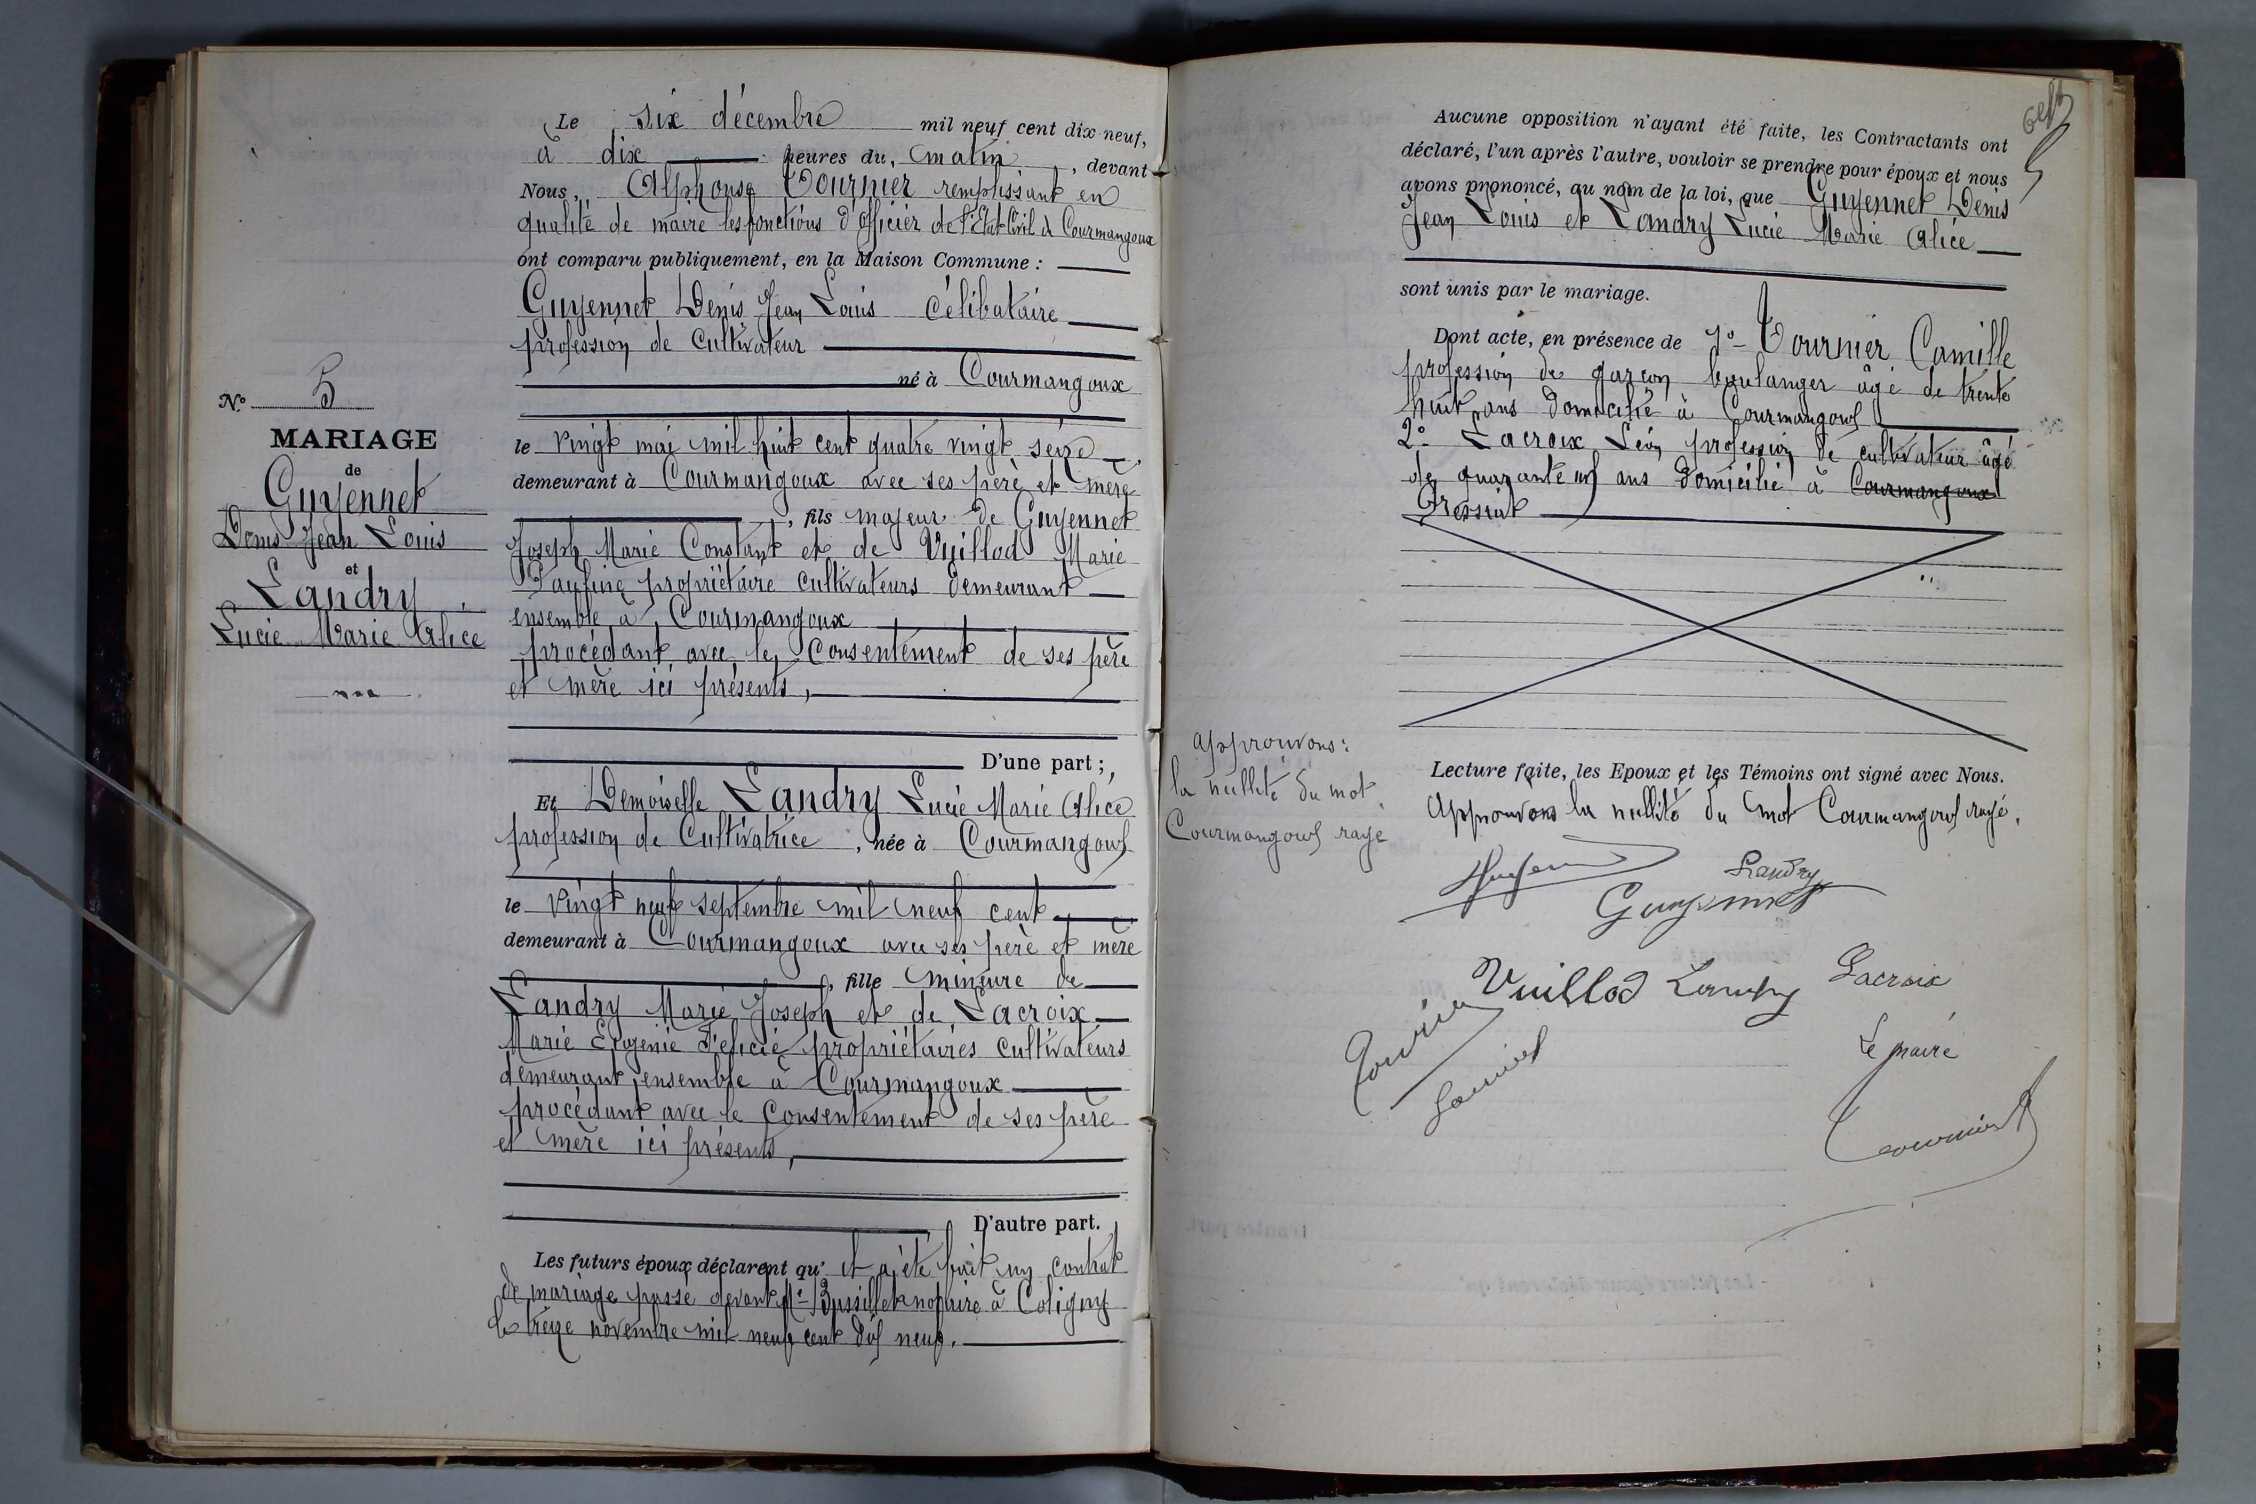 Le six décembre mil neuf cent dix-neuf,
à dix heures du matin, devant
Nous, Alphonse Tournier remplissant en
qualité de maire les fonctions d'officier de l'Etat Civil à Courmangoux
ont comparu publiquement, en la Maison Commune :
Guyennet Denis Jean Louis Célibataire
profession de Cultivateur
né à Courmangoux
le vingt mai mil huit cent quatre vingt seize
demeurant à Courmangoux avec ses père et mère
, fils majeur de Guyennet
Joseph Marie Constant et de Vuillod Marie
Pauline propriétaire cultivateurs demeurant
ensemble à Courmangoux
procédant avec le Consentement de ses père
et mère ici présents,
D'une part ;
N° 5
MARIAGE
de
Guyennet
Denis Jean Louis
et
Landry
Lucie Marie Alice
Et Demoiselle Landry Lucie Marie Alice
profession de Cultivatrice, née à Courmangoux
le vingt neuf septembre mil neuf cent
demeurant à Courmangoux avec ses père et mère
, fille mineure de
Landry Marie Joseph et de Lacroix
Marie Eugenie Félicie propriétaires cultivateurs
demeurant ensemble à Courmangoux
procédant avec le Consentement de ses père
et mère ici présents,
D'autre part.
Les futurs époux déclarent qu' il a été fait un contrat
de mariage passé devant Me Bussillet notaire à Coligny
le treize novembre mil neuf cent dix neuf.
Aucune opposition n'ayant été faite, les Contractants ont
déclaré, l'un après l'autre, vouloir se prendre pour époux et nous
avons prononcé, au nom de la loi, que Guyennet Denis
Jean Louis et Landry Lucie Marie Alice
sont unis par le mariage.
Dont acte, en présence de 1° Tournier Camille
profession de garçon boulanger âgé de trente
huit ans domicilié à Courmangoux
2° Lacroix Léon profession de cultivateur âgé
de quarante un ans domicilié à Courmangoux
Pressiat
Lecture faite, les Epoux et les Témoins ont signé avec Nous.
Approuvons la nullité du mot Courmangoux rayé.
approuvons :
la nullité du mot
Courmangoux rayé
Landry
Guyennet
Vuillod Landry Lacroix
Le maire
Tournier